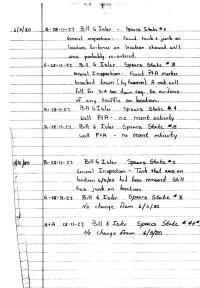 6/9/80 B-28-11-27 Bill G Isler - Spears State #2
General inspection - Found tank & junk on
location. Evidence on location showed well
was probably re-entered.
G-28-11-27 Bill G Isler Spears State #3
General Inspection: Found P&A marker
knocked down (by farmer). A rock will
fall for 3-4 sec down csg. No evidence
of any traffic on location.
A-28-11-27 Bill G Isler Spears State #4
Well P&A - no recent activity
28-11-27 Bill G Isler Spears State #5
Well P+A - no recent activity
B-28-11-27 Bill G Isler Spears State #2
General Inspection - Tank that was on
location 6/9/80 had been removed. Still
has junk on location.
G-28-11-27 Bill G Isler Spears State #3
No change from 6/9/80
28-11-27 Bill G Isler Spears State
No change from 6/9/80